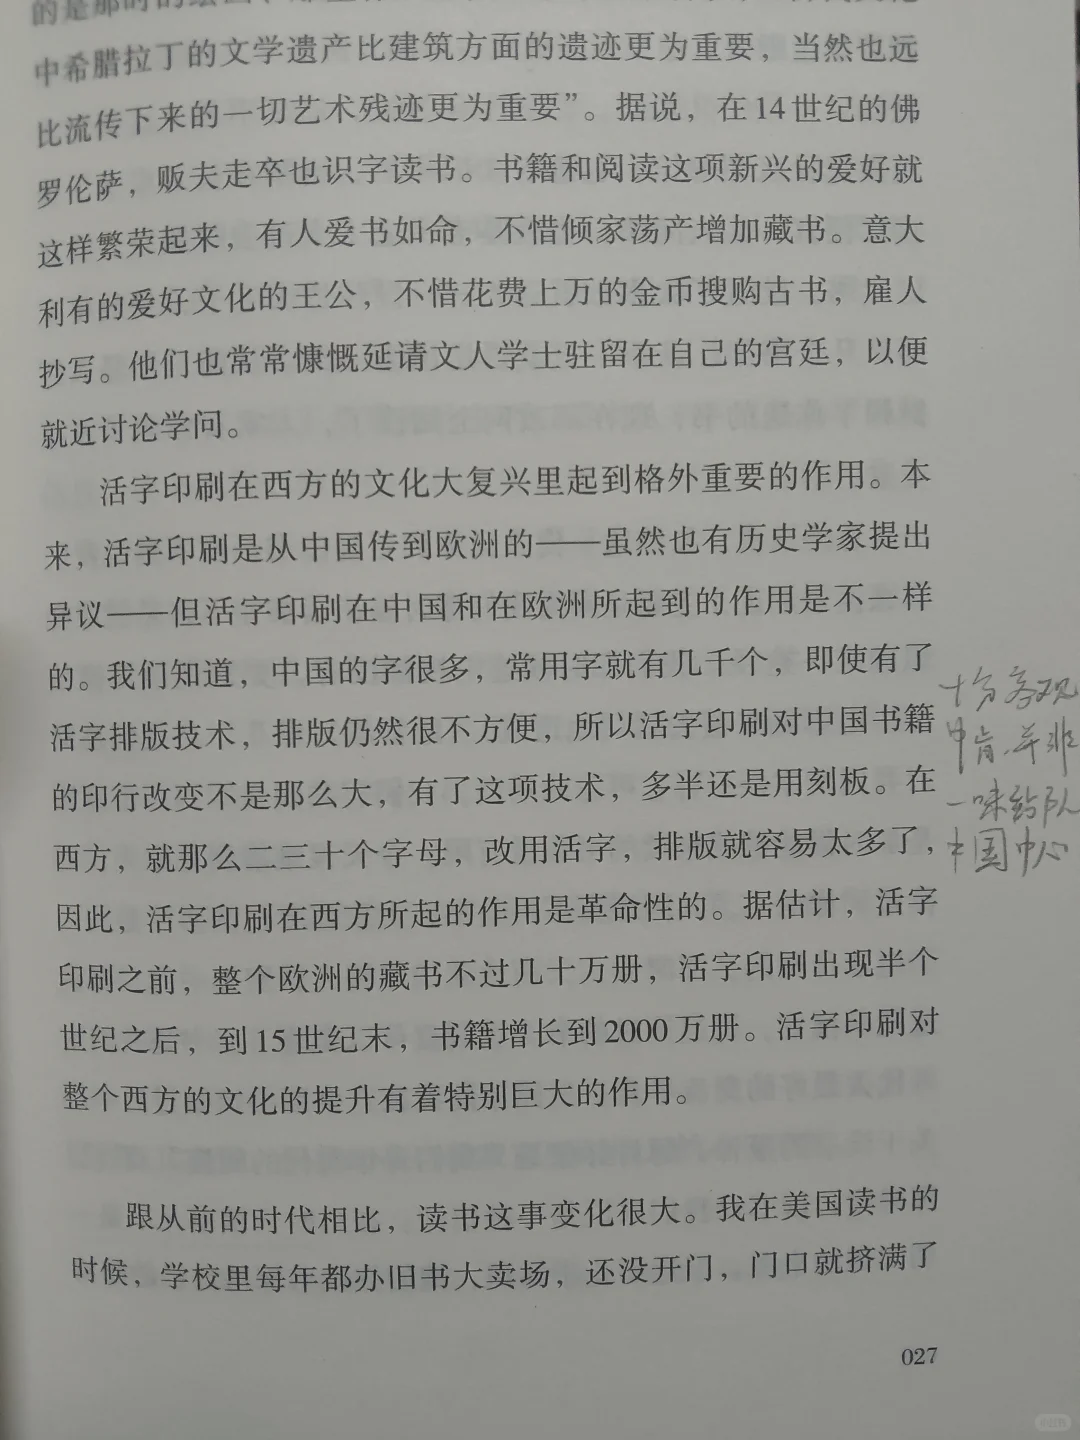 中希腊拉丁的文学遗产比建筑方面的遗迹更为重要，当然也远
比流传下来的一切艺术残迹更为重要”。据说，在14世纪的佛
罗伦萨，贩夫走卒也识字读书。书籍和阅读这项新兴的爱好就
这样繁荣起来，有人爱书如命，不惜倾家荡产增加藏书。意大
利有的爱好文化的王公，不惜花费上万的金币搜购古书，雇人
抄写。他们也常常慷慨延请文人学士驻留在自己的宫廷，以便
就近讨论学问。
活字印刷在西方的文化大复兴里起到格外重要的作用。本
来，活字印刷是从中国传到欧洲的——虽然也有历史学家提出
异议——但活字印刷在中国和在欧洲所起到的作用是不一样
的。我们知道，中国的字很多，常用字就有几千个，即使有了
活字排版技术，排版仍然很不方便，所以活字印刷对中国书籍
的印行改变不是那么大，有了这项技术，多半还是用刻板。在
西方，就那么二三十个字母，改用活字，排版就容易太多了，
因此，活字印刷在西方所起的作用是革命性的。据估计，活字
印刷之前，整个欧洲的藏书不过几十万册，活字印刷出现半个
世纪之后，到15世纪末，书籍增长到2000万册。活字印刷对
整个西方的文化的提升有着特别巨大的作用。
跟从前的时代相比，读书这事变化很大。我在美国读书的
时候，学校里每年都办旧书大卖场，还没开门，门口就挤满了
027
十分客观
中肯、并非
一味
中国中心